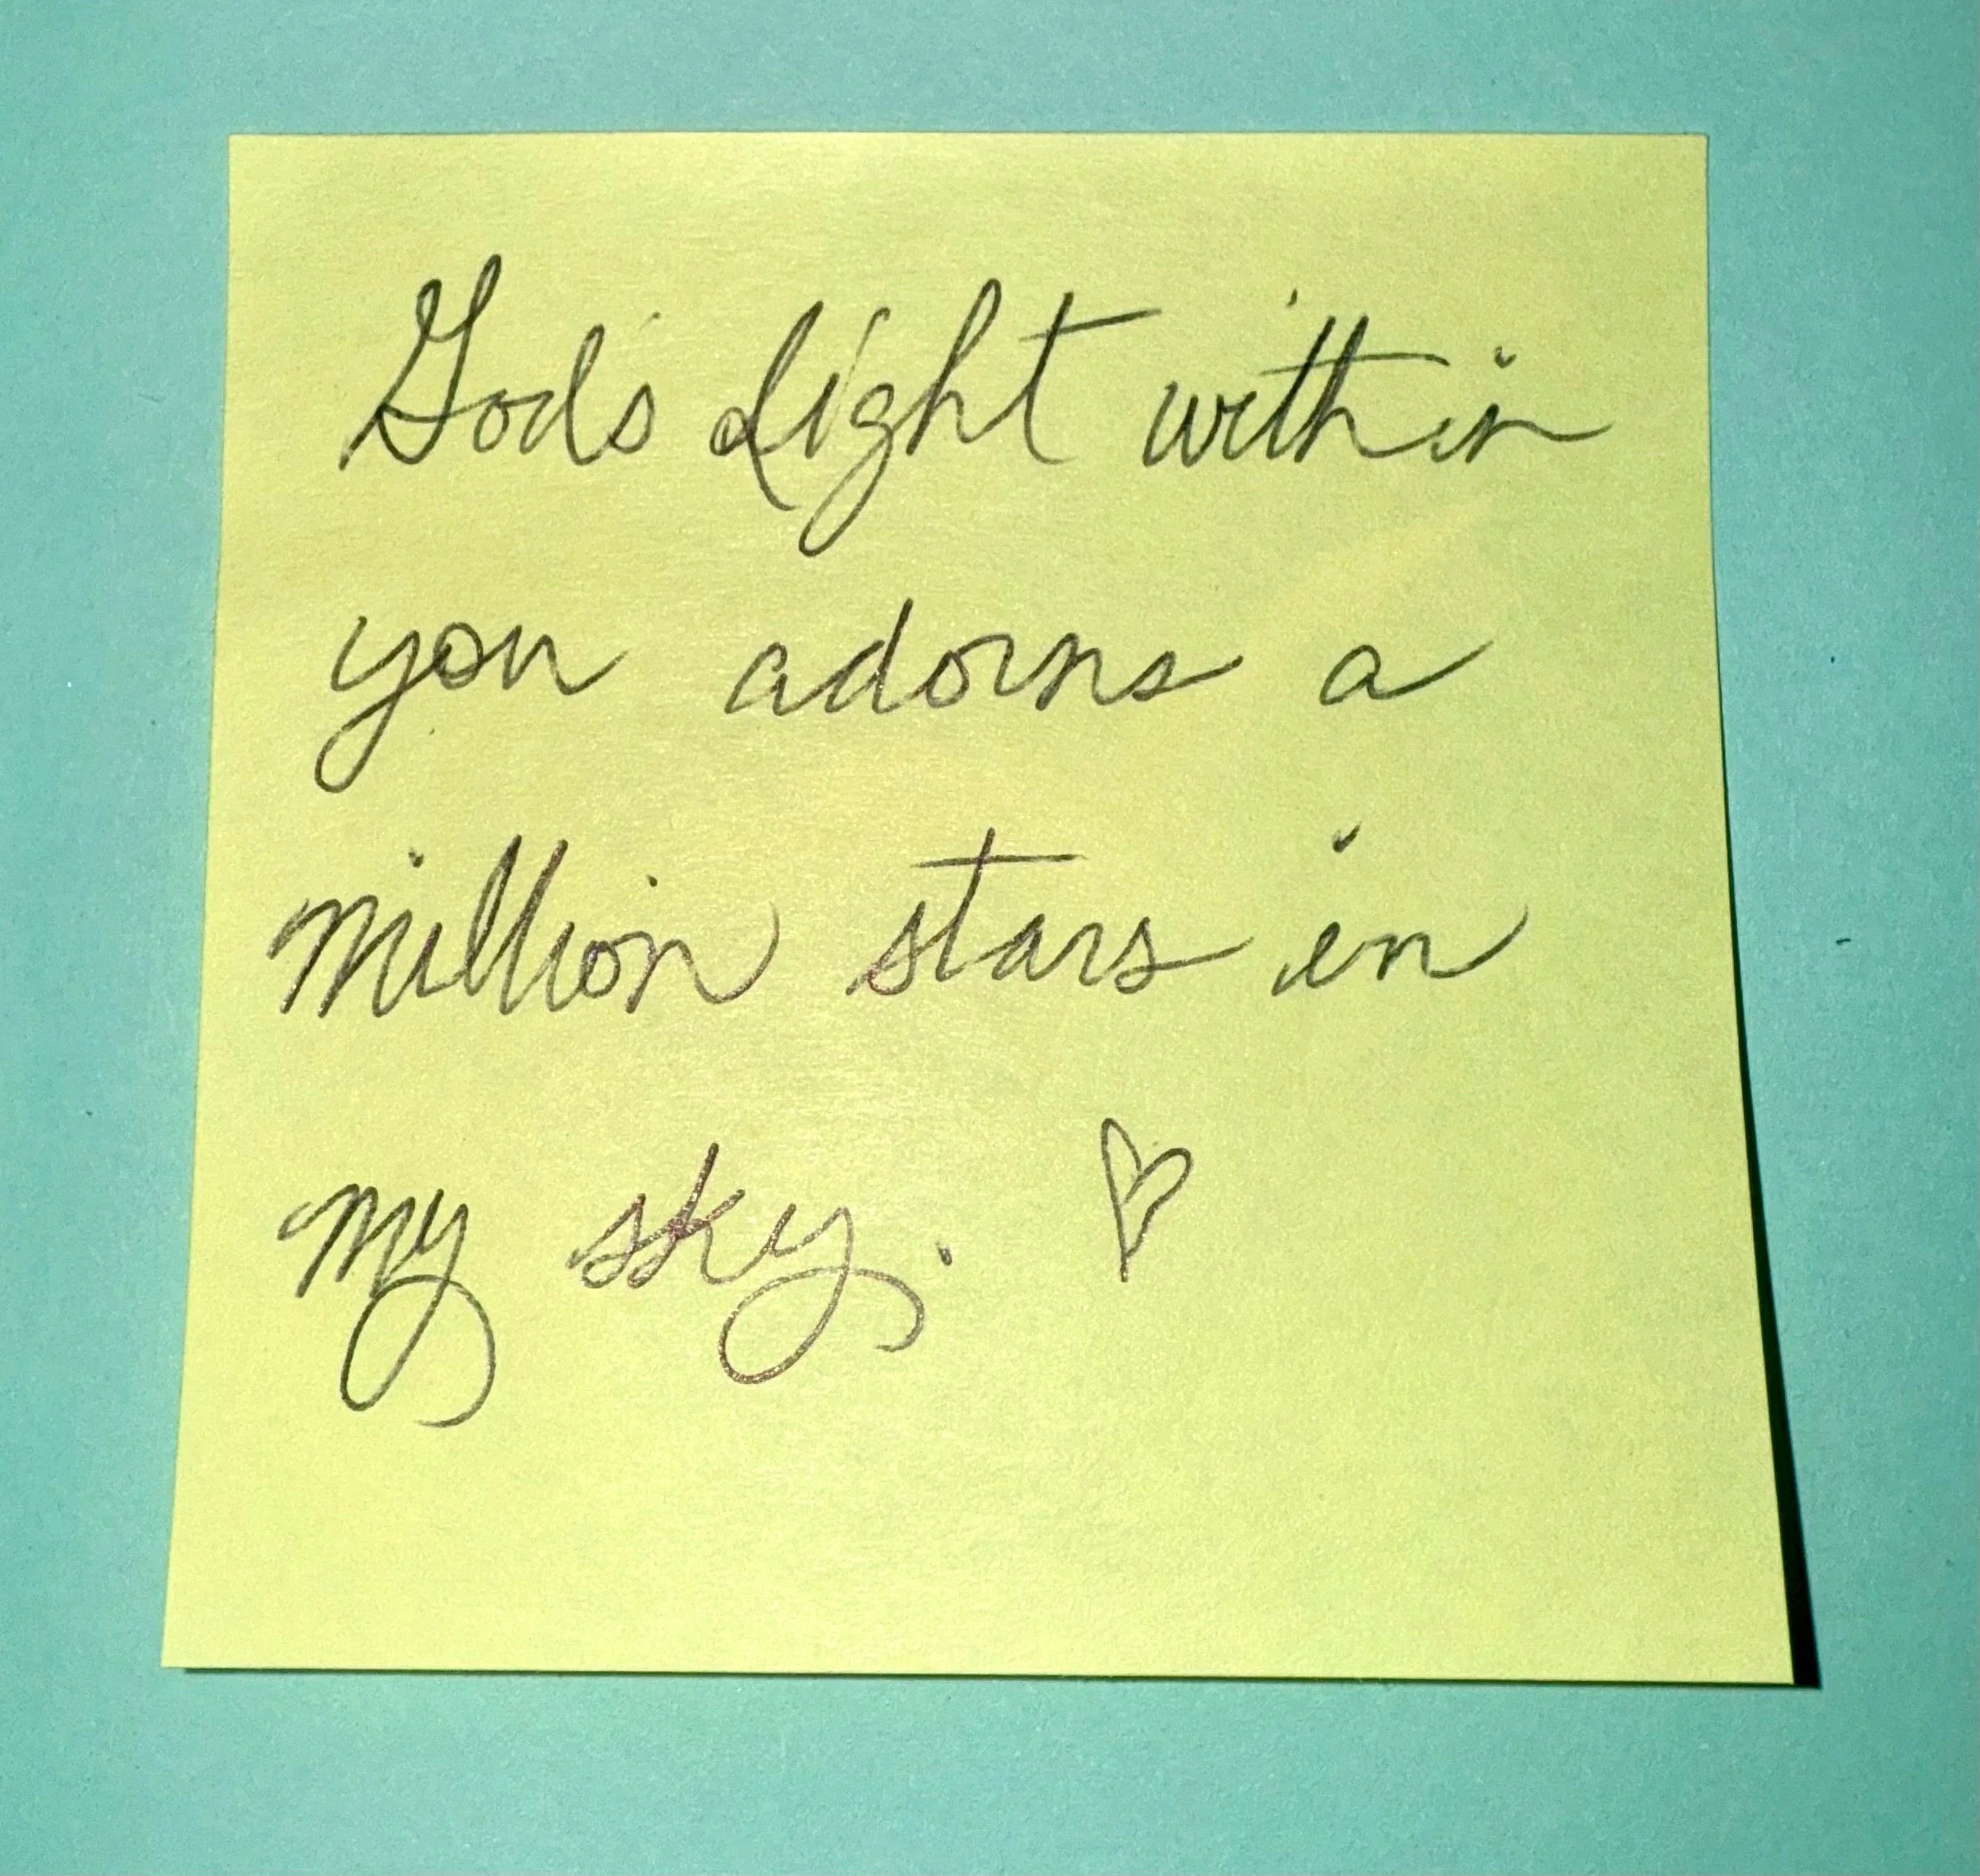 God's Light within
you adorns a
million stars in
my sky. ♡